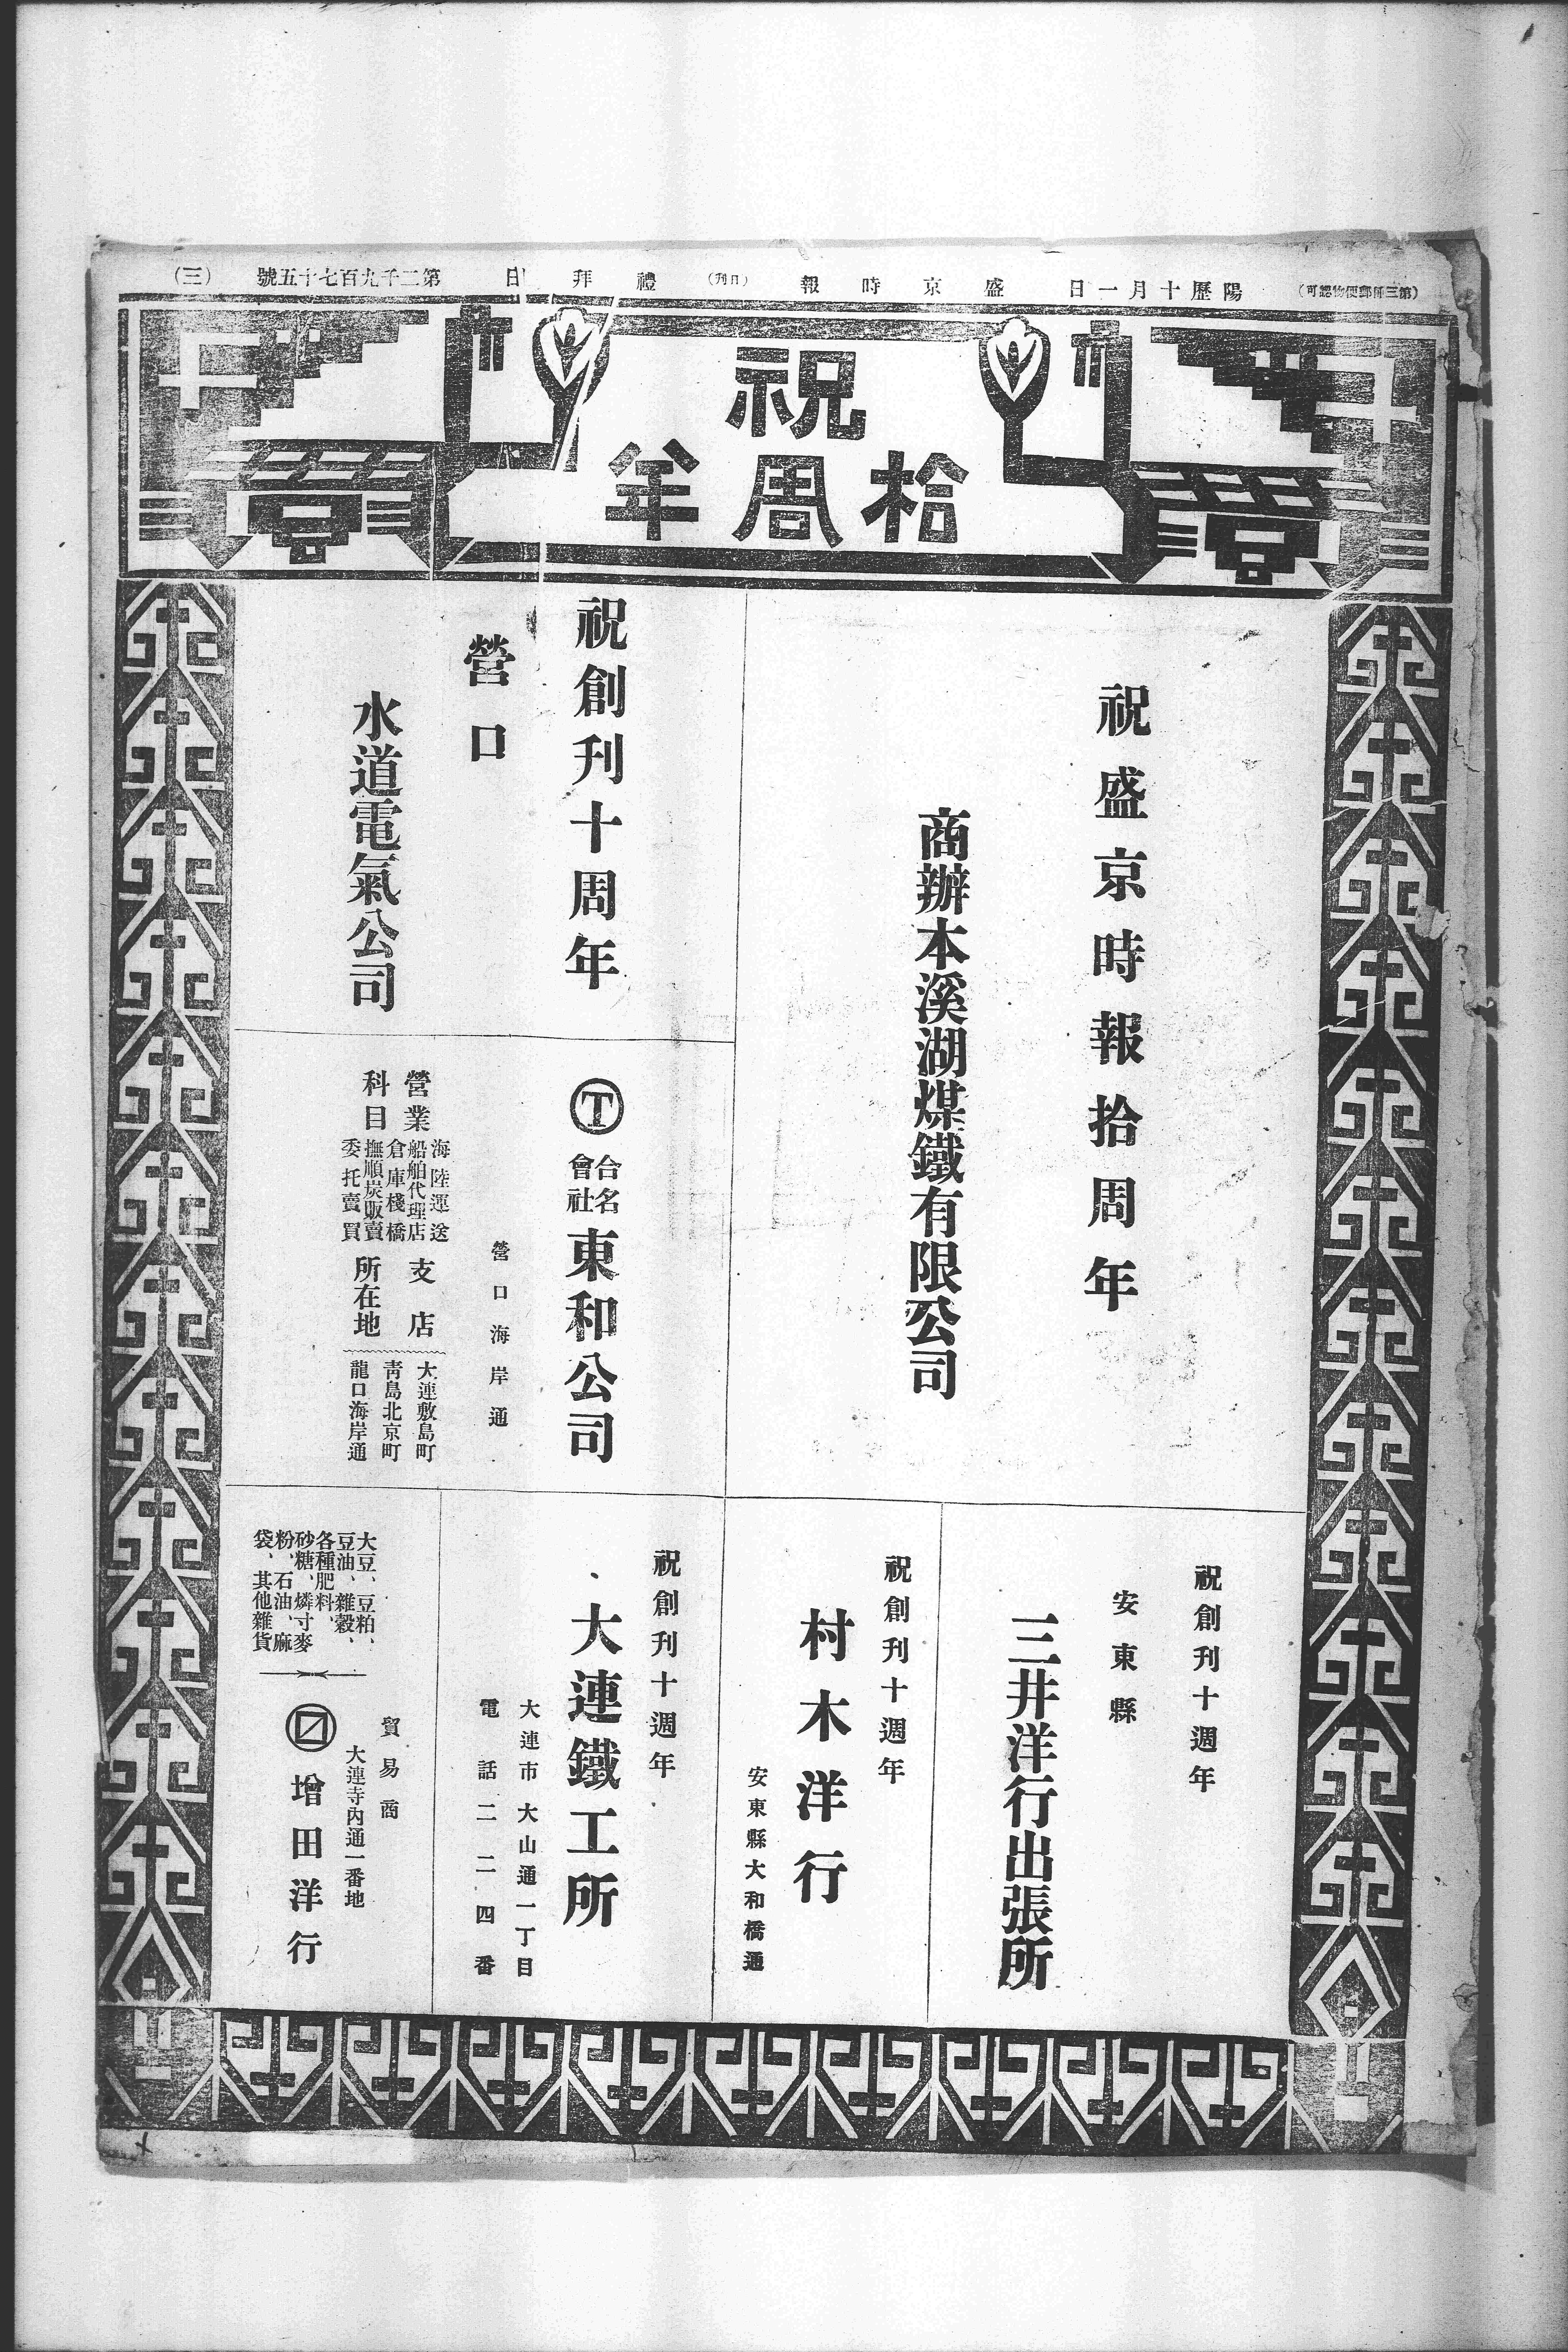 （第三種郵便物認可）
陽歷十月一日
盛京時報
（日刊）
禮拜日
第二千九百七十五號
（三）
祝
拾周年
祝盛京時報拾周年
商辦本溪湖煤鐵有限公司
祝創刊十周年
營口
水道電氣公司
T
合名
會社
東和公司
營口海岸通
營業
科目
海陸運送
船舶代理店
倉庫棧橋
撫順炭販賣
委托賣買
支店
所在地
大連敷島町
青島北京町
龍口海岸通
祝創刊十週年
安東縣
三井洋行出張所
祝創刊十週年
村木洋行
安東縣大和橋通
祝創刊十週年
大連鐵工所
大連市大山通一丁目
電話二二四番
大豆、豆粕、
豆油、雜穀、
各種肥料、
砂糖、燐寸麥
粉、石油、麻
袋、其他雜貨
貿易商
大連寺內通一番地
增田洋行